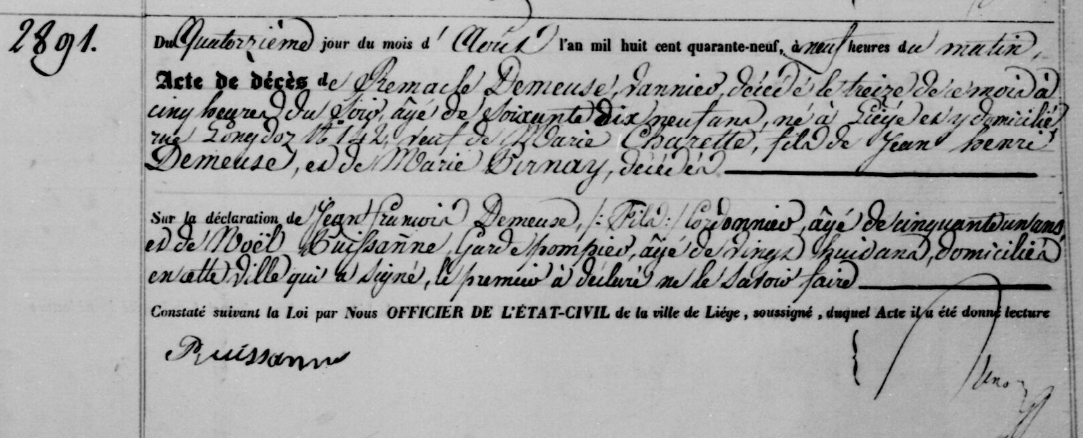 2891.
Du Quatorzième jour du mois d'Août l'an mil huit cent quarante-neuf, à neuf heures du matin,
Acte de décès de Remacle Demeuse, vannier, décédé le treize de ce mois à
cinq heures du Soir, âgé de Soixante dix neuf ans, né à Liége et y domicilié
rue Longdoz N° 142, veuf de Marie Charette, fils de Jean henri
Demeuse, et de Marie Pirnay, décédés
Sur la déclaration de Jean françois Demeuse, /: Fils :/ Cordonnier, âgé de cinquante un ans,
et de Noël Puissanne, Garde pompier, âgé de vingt huit ans, domiciliés
en cette Ville qui a signé, le premier à déclaré ne le Savoir faire
Constaté suivant la Loi par Nous OFFICIER DE L'ÉTAT-CIVIL de la ville de Liége, soussigné, duquel Acte il a été donné lecture
Puissanne